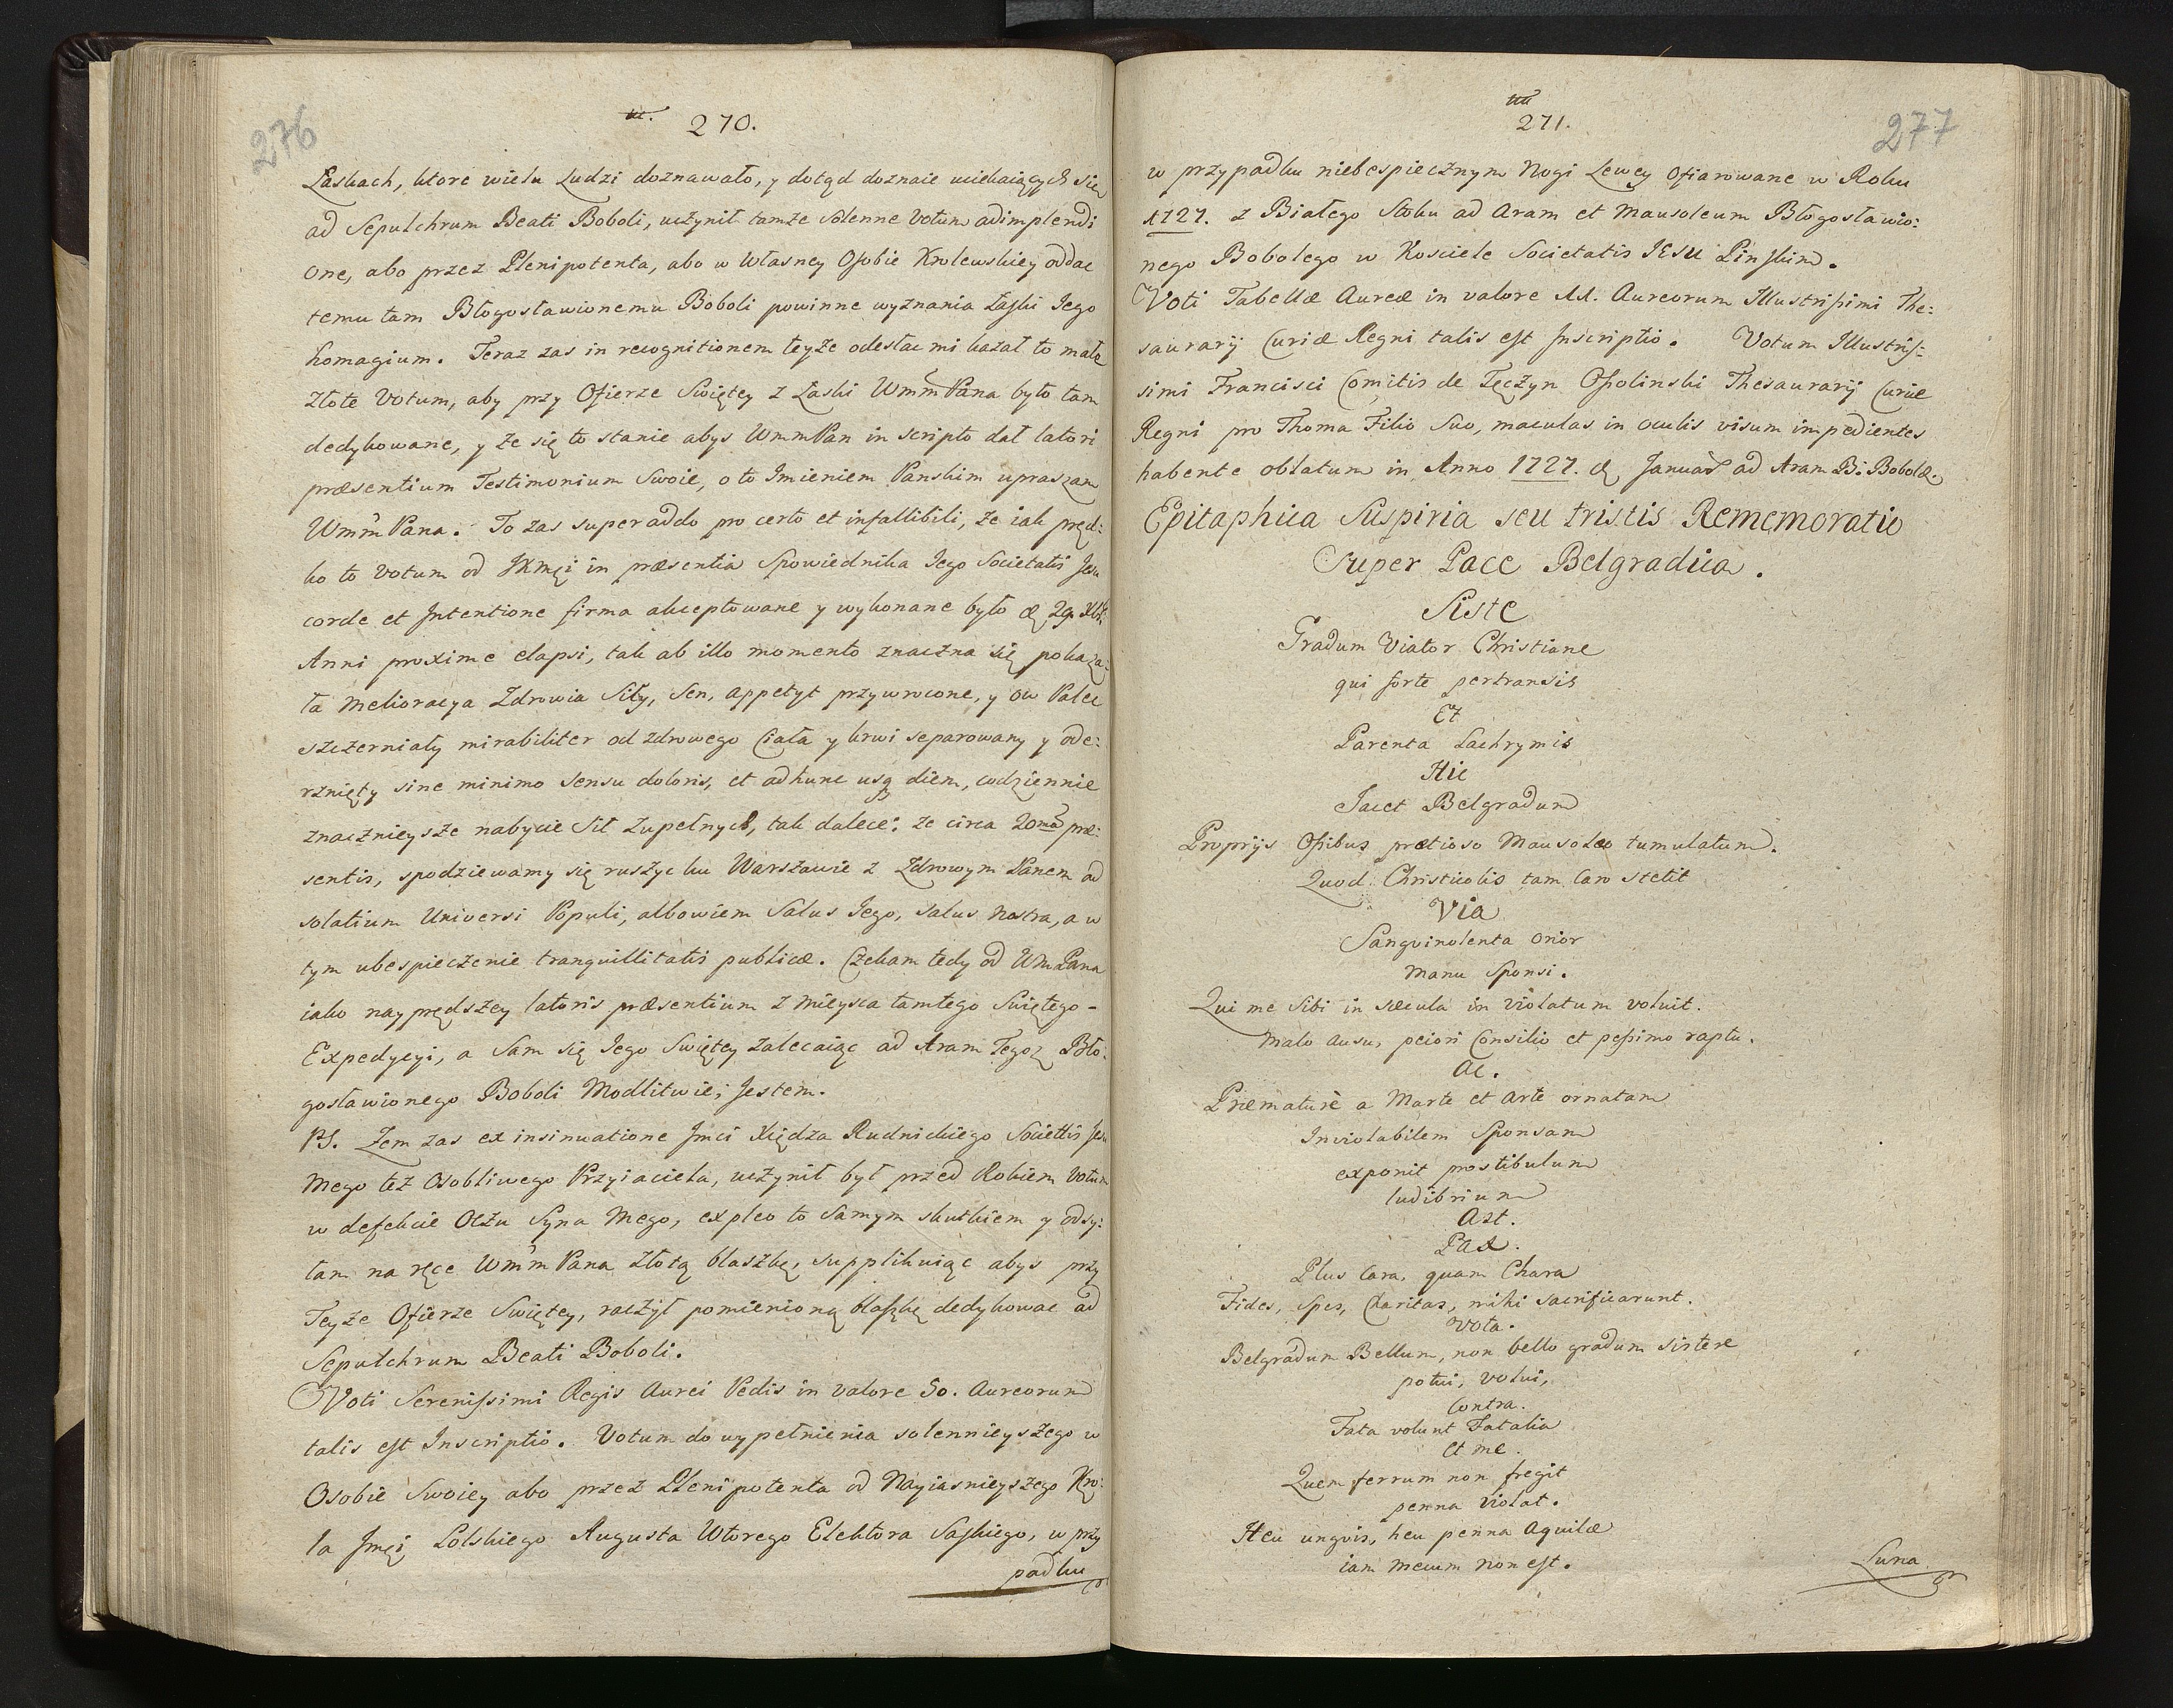 276
270.
Łaskach, ktore wielu Ludzi doznawało, y dotąd doznaie uciekaiących się
ad Sepulchrum Beati Boboli, uczynił tamze Solenne Votum adimplendi
one, abo przez Plenipotenta, abo w własney Osobie Krolewskiey oddac
temu tam Błogosławionemu Boboli powinne wyznania Łaski Jego
homagium. Teraz zas in recognitionem teyże odesłac mi kazał to małe
złote Votum, aby przy Ofierze Swiętey z Łaski Wmm Pana było tam
dedykowane, y ze się to stanie abys WmmPan in scripto dał latori
præsentium Testimonium Swoie, o to Imieniem Panskim upraszam
Wmm Pana. To zas superaddo pro certo et infallibili, ze iak pręd:
ko to Votum od JKmci in præsentia Spowiednika Jego Societatis Jesu
corde et Intentione firma akceptowane y wykonane było d. 29. Xbr.
Anni proxime elapsi, tak ab illo momento znaczna się pokaza:
ła melioracya Zdrowia Siły, Sen, appetyt przywrocone, y ow Palec
szczerniały mirabiliter od zdrowego Ciała y krwi separowany y ode:
rznięty sine minimo sensu doloris, et adhunc usq diem, codziennie
znacznieysze nabycie Sił zupełnych, tak dalece: ze circa 20ma præ:
sentis, spodziewamy się ruszyc ku Warszawie z Zdrowym Panem ad
solatium Universi Populi, albowiem Salus Jego, salus nostra, a w
tym ubespieczenie tranquillitatis publicæ. Czekam tedy od WmPana
iako nayprędszey latoris præsentium z mieysca tamtego Swiętego-
Expedycyi, a Sam się Jego Swiętey zalecaiąc ad Aram Tegoz Bło:
gosławionego Boboli Modlitwie, Jestem.
PS. Zem zas ex insinuatione Jmci Xiędza Rudnickiego Societtis Jesu
mego też Osobliwego Przyiaciela, uczynił był przed Rokiem Votum
w defekcie Oczu Syna Mego, expleo to samym skutkiem y odsy:
łam na ręce Wmm Pana złotą blaszkę, supplikuiąc abys przy
Teyze Ofierze Swiętey, raczył pomienioną blaszkę dedykowac ad
Sepulchrum Beati Boboli.
Voti Serenissimi Regis Aurei Pedis in valore 50. Aureorum
talis est Inscriptio. Votum do wypełnienia solennieyszego w
Osobie Swoiey abo przez Plenipotenta od Nayiasnieyszego Kro:
la Jmci Polskiego Augusta Wtorego Elektora Saskiego, w przy
padku
277
271.
w przypadku niebespiecznym Nogi Lewey Ofiarowane w Roku
1727. z Białego Stoku ad Aram et Mausoleum Błogosławio:
nego Bobolego w Kosciele Societatis JESU Pinskim.
Voti Tabellæ Aureæ in valore Aureorum Illustrissimi The:
saurarij Curiæ Regni talis est Inscriptio. Votum Illustris:
simi Francisci Comitis de Tęczyn Ossolinski Thesaurarij Curiæ
Regni pro Thoma Filio Suo, maculas in oculis visum impedientes
habente oblatum in Anno 1727. d. Januar ad Aram B: Bobolæ.
Epitaphica Suspiria seu tristis Rememoratio
Super Pace Belgradica.
Siste
Gradum Viator Christiane
qui forte pertransis
Et
Parenta Lachrymis
Hic
Jacet Belgradum
Proprijs Ossibus prætioso Mausoleo tumulatum.
Quod Christicolis tam Caro stetit
Via
Sanguinolenta orior
manu Sponsi.
Qui me sibi in sæcula in violatum voluit.
Malo ausu, peiori Consilio et pessimo raptu.
Ac.
Præmature a Marte et Arte ornatam
Inviolabilem Sponsam
exponit prostibulum
ludibrium
Ast.
Pax.
Plus Cara, quam Chara
Fides, Spes, Charitas, mihi sacrificarunt.
Vota.
Belgradum Bellum, non bello gradum sistere
potui, volui,
Contra.
Fata volunt Fatalia
Et me.
Quem ferrum non fregit
penna violat.
Heu ungvis, heu penna Aquilæ
iam mecum non est.
Luna